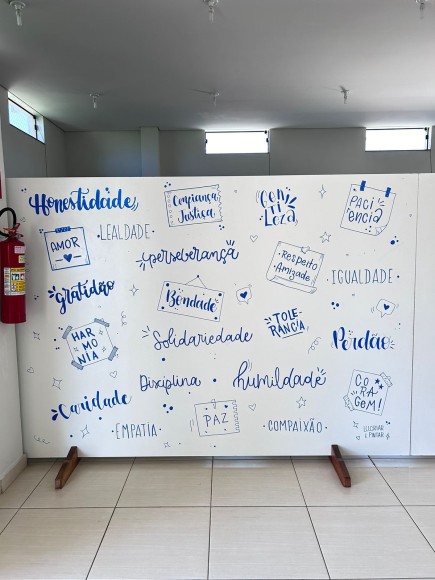 Honestidade
Confiança
Justiça
GEN
TI
LEZA
PACI
ÊNCIA
AMOR
LEALDADE
perseverança
Respeito
Amizade
IGUALDADE
gratidão
Bondade
HAR
MO
NIA
Solidariedade
TOLE
RÂNCIA
Perdão
Disciplina
humildade
CO
RA
GEM!
Caridade
EMPATIA
PAZ
COMPAIXÃO